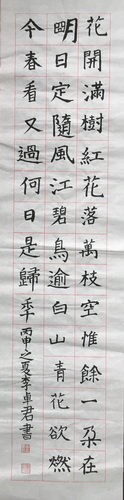 花開滿樹紅花落萬枝空惟餘一朶在
明日定隨風江碧鳥逾白山青花欲燃
今春看又過何日是歸年丙申之夏李卓君書